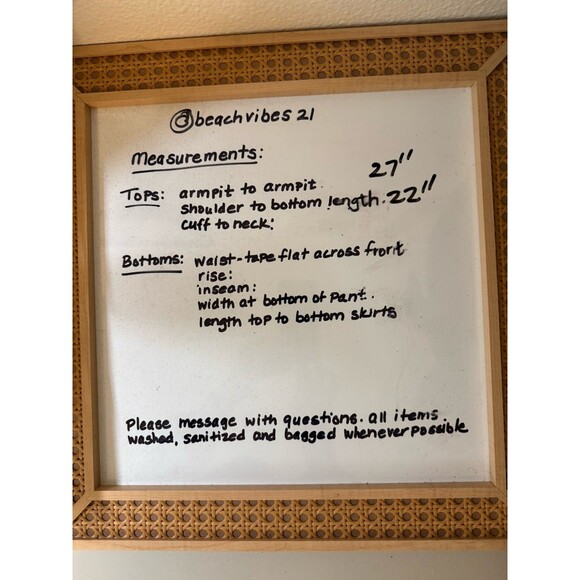 @beachvibes 21
Measurements:
Tops: armpit to armpit. 27"
shoulder to bottom length. 22"
cuff to neck:
Bottoms: waist-tape flat across front
rise:
inseam:
width at bottom of pant.
length top to bottom skirts
Please message with questions. all items
washed, sanitized and bagged whenever possible